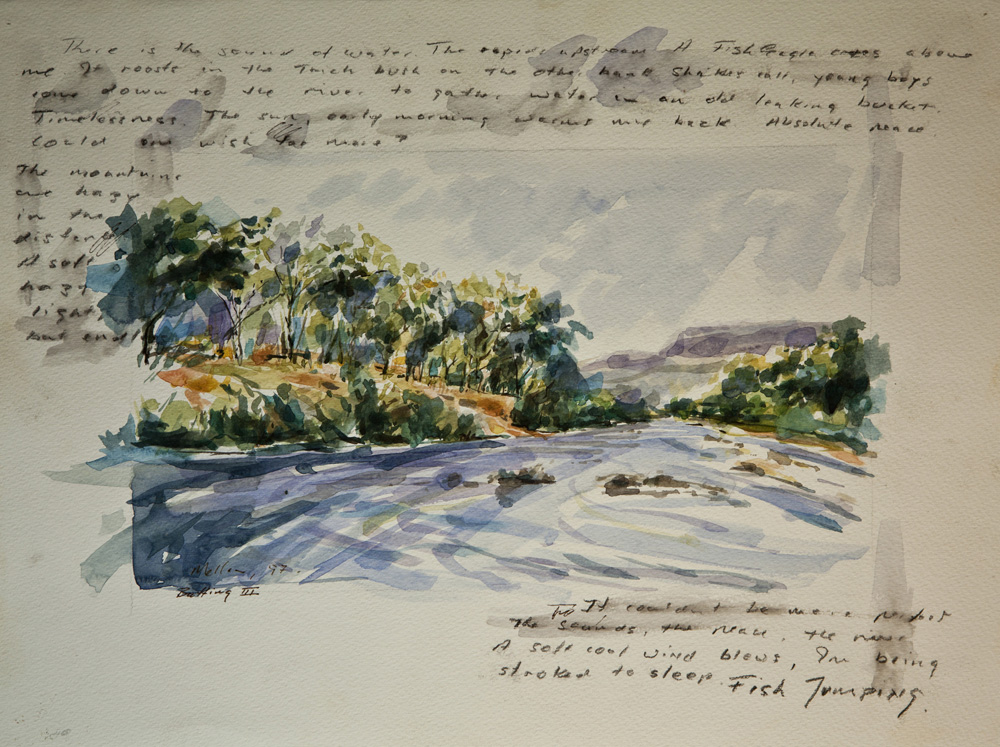 There is the sound of water. The rapids upstream A Fish Eagle cries above
me It roosts in the thick bush on the other bank Shakes call, young boys
come down to the river to gather water in an old leaking bucket.
Timelessness. The sun, early morning warms my back Absolute peace.
Could one wish for more?
The mountains
are hazy
in the
distance
A soft
hazy
light
but
It couldn't be more perfect
The sounds, the peace, the river
A soft cool wind blows, I'm being
stroked to sleep. Fish Jumping.
'97.
III